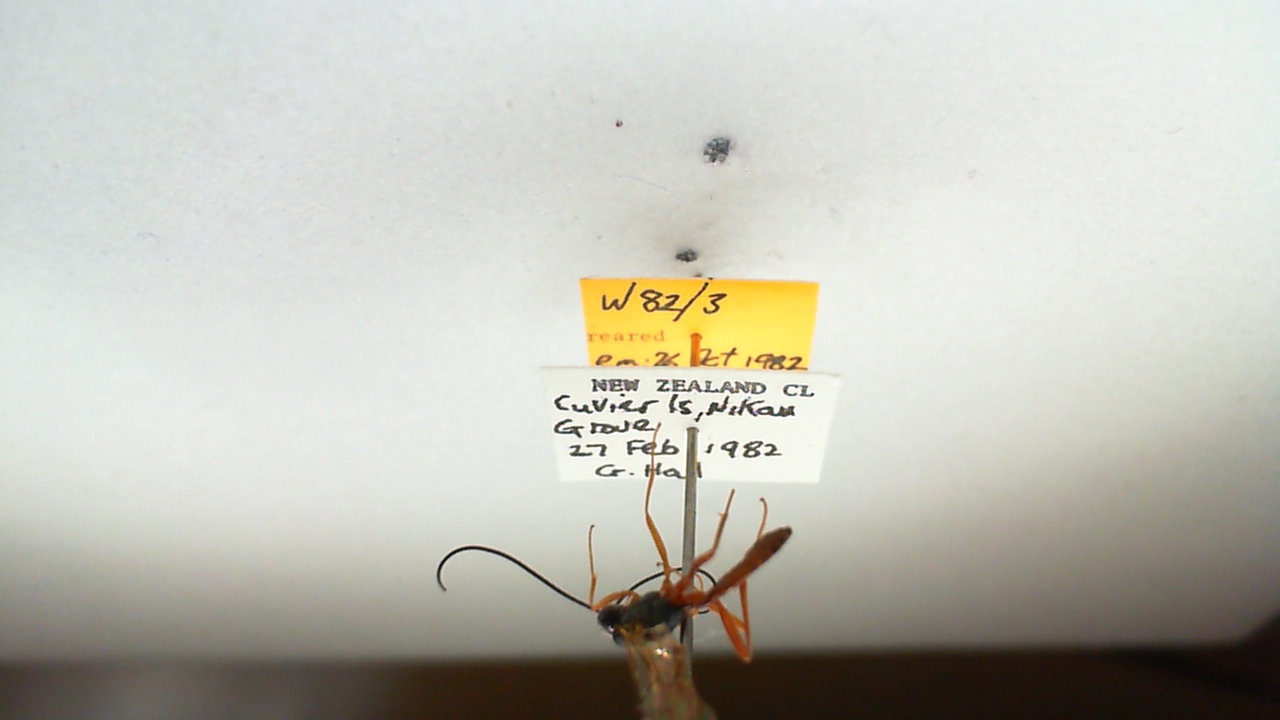 W82/3
reared
em. 26 Oct 1982
NEW ZEALAND CL
Cuvier Is, Nikau
Grove
27 Feb 1982
G. Hall